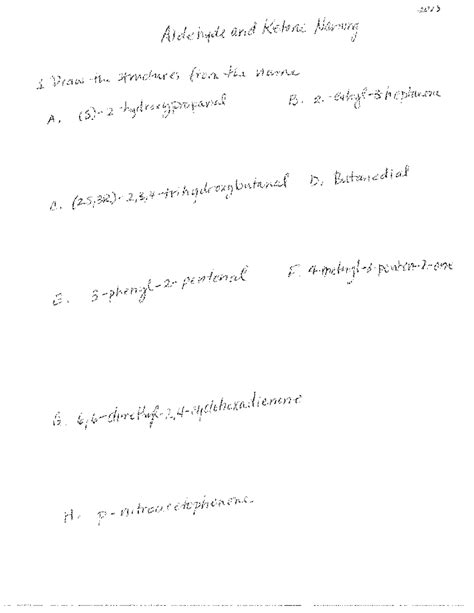 2013
Aldehyde and Ketone Naming
1. Draw the structures from the name
A. (S)-2-hydroxypropanal B. 2-
C. (2S,3R)-2,3,4-trihydroxybutanal D. Butanedial
E. 3-phenyl-2-pentenal F. 4-methyl-3-penten-2-one
G. 6,6-dimethyl-2,4-cyclohexadienone
H. p-nitroacetophenone